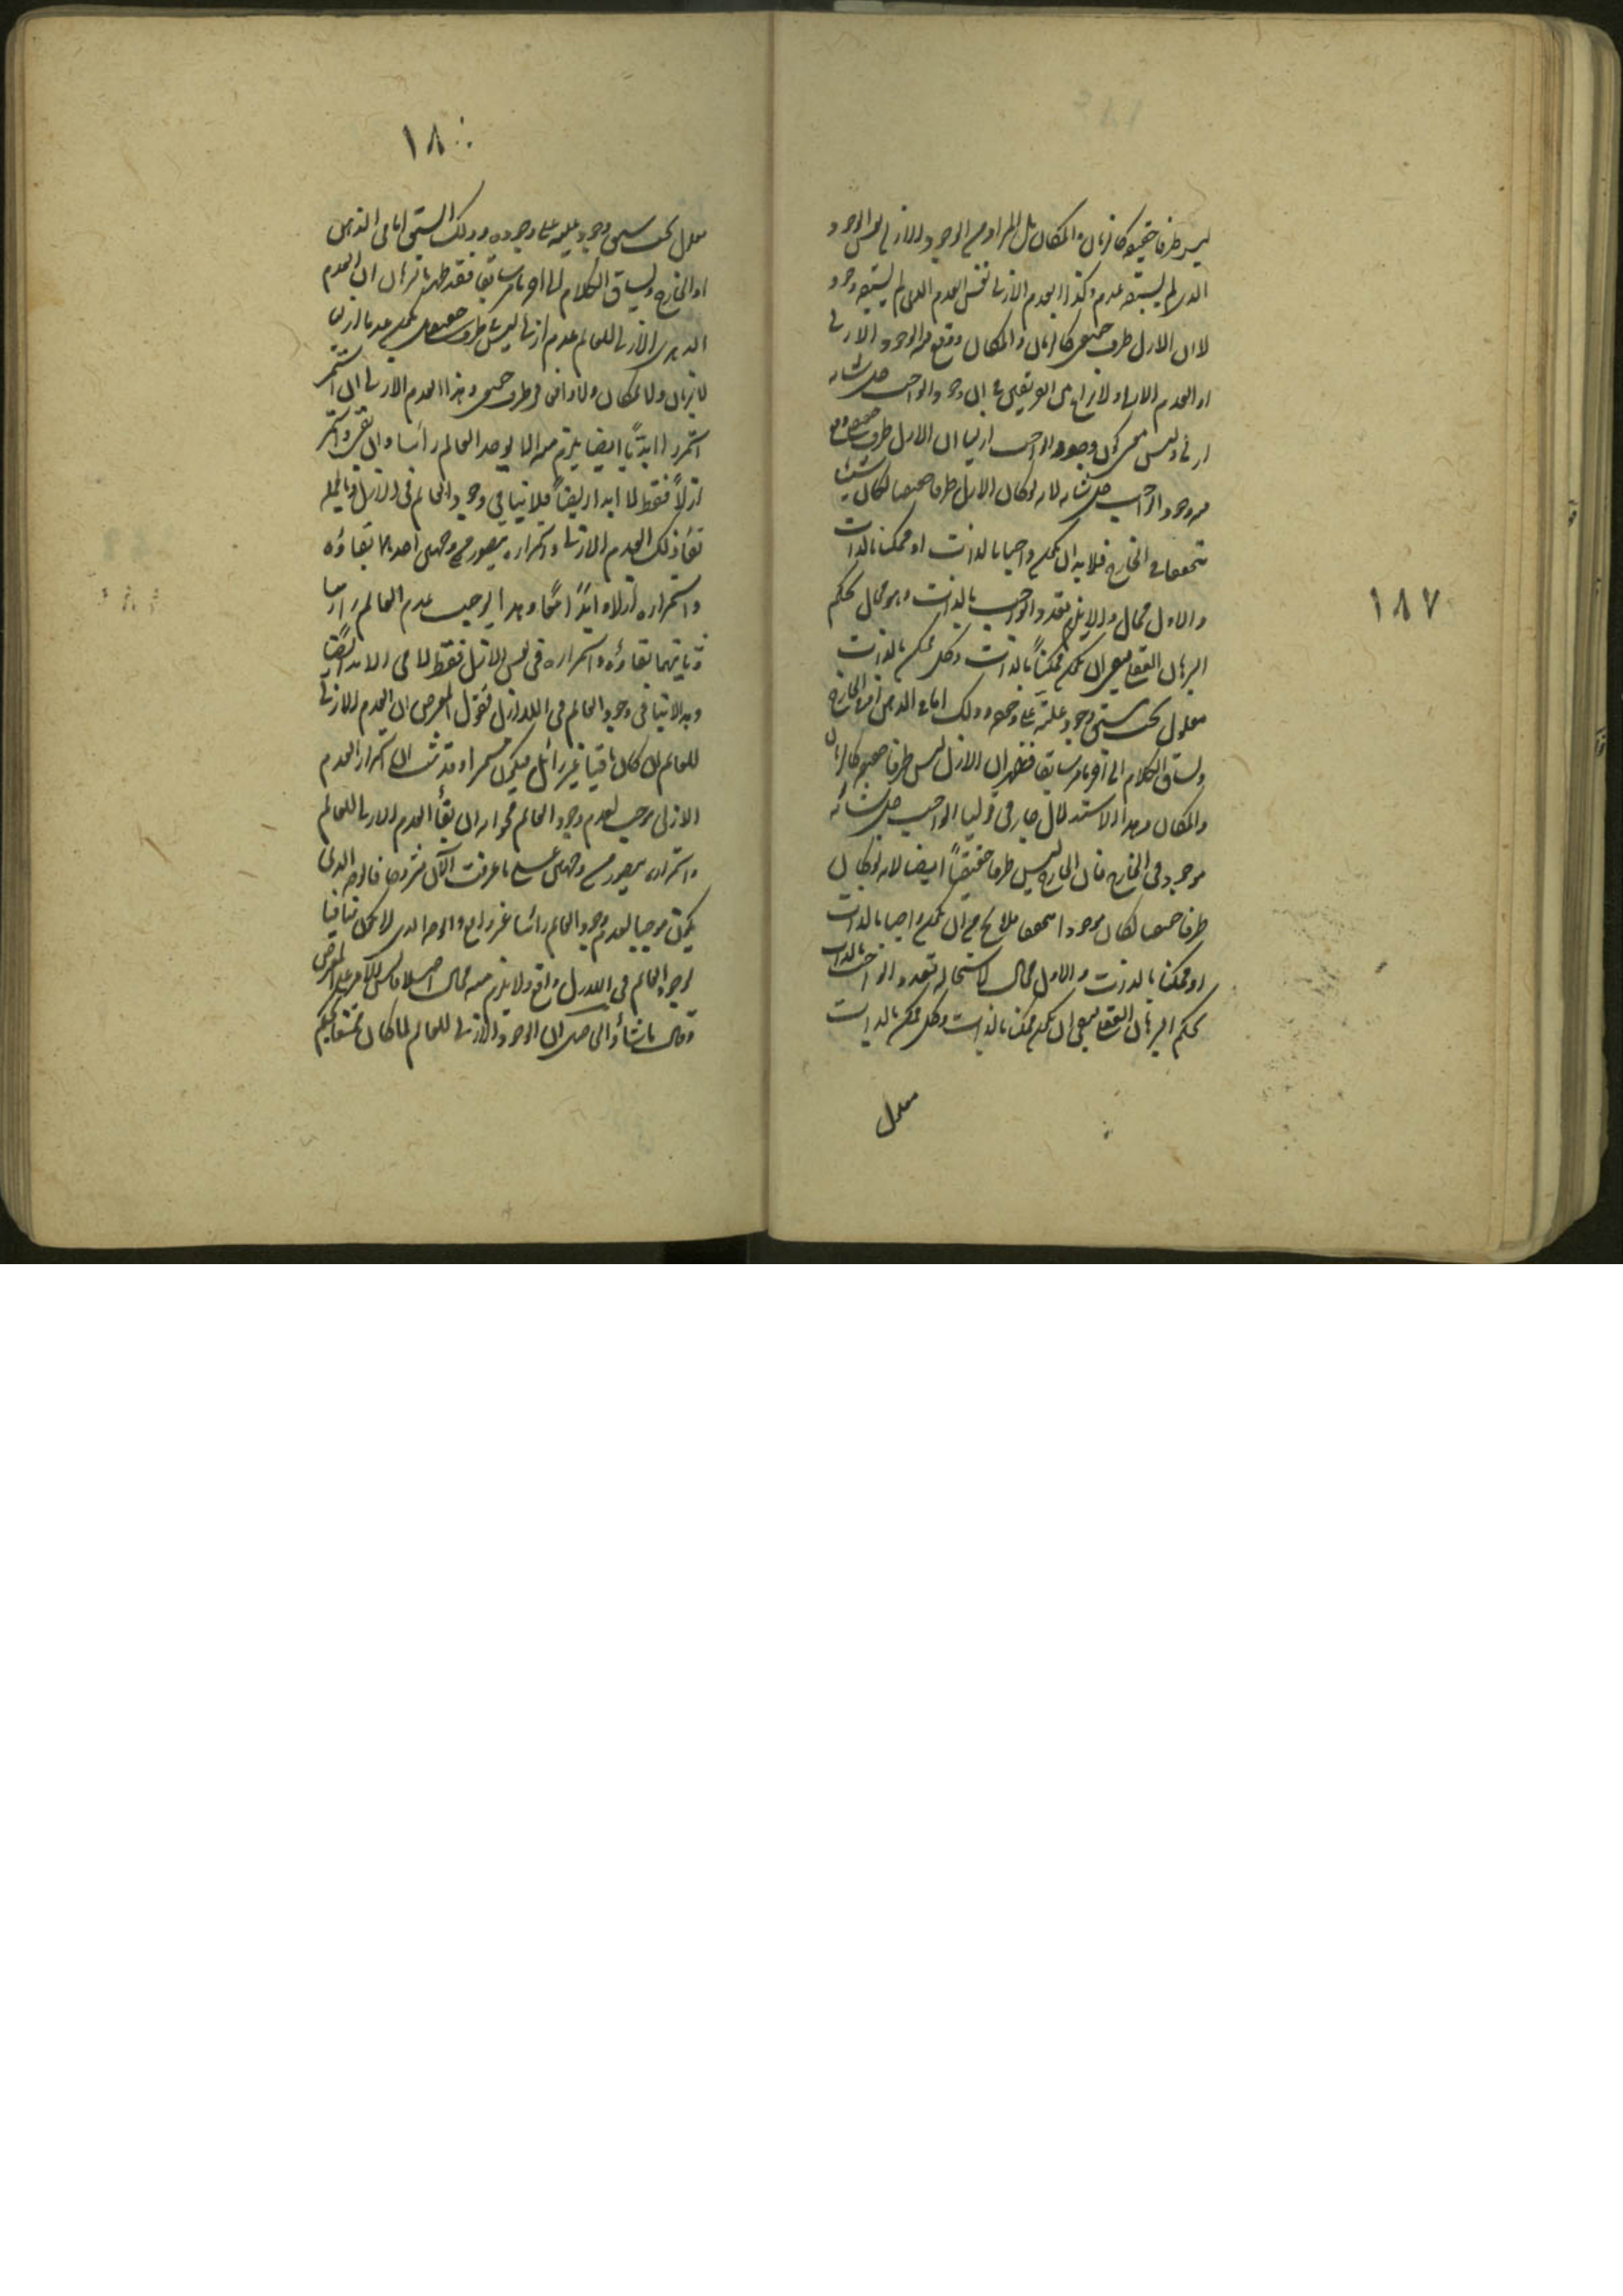 ١٨٧
ليس ظرفا حقيقيا كالزمان والمكان بل المراد من الوجود الازلي نفس الوجود
الذي لم يسبقه عدم وكذا العدم الازلي نفس العدم الذي لم يسبقه وجود
لا ان الازل ظرف حقيقي كالزمان والمكان وقع فيه الوجود الازلي
او العدم الازلي ولا نزاع بين الفريقين في ان وجود الواجب جل شانه
ازلي وليس معنى كون وجود الواجب ازليا ان الازل ظرف حقيقي وقع
فيه وجود الواجب جل شانه لانه لو كان الازل ظرفا حقيقيا لكان شيئا
متحققا في الخارج فلابد ان يكون واجبا بالذات او ممكنا بالذات
والاول محال والا يلزم تعدد الواجب بالذات وهو محال بحكم
البرهان القطعي ان يكون ممكنا بالذات وكل ممكن بالذات
معلول يجب سبق وجود علته على وجوده وذلك اما في الذهن او في الخارج
وليساق الكلام الى آخر ما مر سابقا فظهر ان الازل ليس ظرفا حقيقيا كالزمان
والمكان وهذا الاستدلال جار في قولنا الواجب جل شانه
موجود في الخارج فان الخارج ليس ظرفا حقيقيا ايضا لانه لو كان
ظرفا حقيقيا لكان موجودا متحققا فلا يخ من ان يكون واجبا بالذات
او ممكنا بالذات والاول محال لاستحالة تعدد الواجب بالذات
بحكم البرهان القطعي ان يكون ممكنا بالذات وكل ممكن بالذات
معلول
١٨٠
معلول يجب سبق وجود علته على وجوده وذلك السبق اما في الذهن
او الخارج وليساق الكلام الى آخر ما مر سابقا فقد ظهر بالبرهان ان العدم
الازلي للعالم عدم ازلي ليس ظرف حقيقي
لا زمان ولا مكان ولا واقع في ظرف حقيقي وهذا العدم الازلي ان استمر
استمرارا ابديا ايضا يلزم منه ان لا يوجد العالم راسا وان بقي واستمر
ازلا فقط لا ابدا ايضا فلا ينافي وجود العالم في الازل وبالجملة
بقاء ذلك العدم الازلي واستمراره يتصور على وجهين احدهما بقاؤه
واستمراره ازلا وابدا معا وهذا يوجب عدم العالم راسا
وثانيهما بقاؤه واستمراره في نفس الازل فقط لا في الابد ايضا
وهذا لا ينافي وجود العالم في اللاازل فقول المعترض ان العدم الازلي
للعالم ان كان باقيا غير زائل فيكون مستمرا وقد ثبت ان استمرار العدم
الازلي موجب لعدم وجود العالم فجوابه ان بقاء العدم الازلي للعالم
واستمراره يتصور على وجهين على ما عرفت الآن مشروحا فالوجه الذي
يكون موجبا لعدم وجود العالم راسا غير واقع والوجه الذي لا يكون منافيا
لوجود العالم في اللاازل واقع ولا يلزم منه محال اصلا فليس للمعترض
وقال ما نشاؤه الى صل ان الوجود الازلي للعالم لما كان ممتنعا بحكم